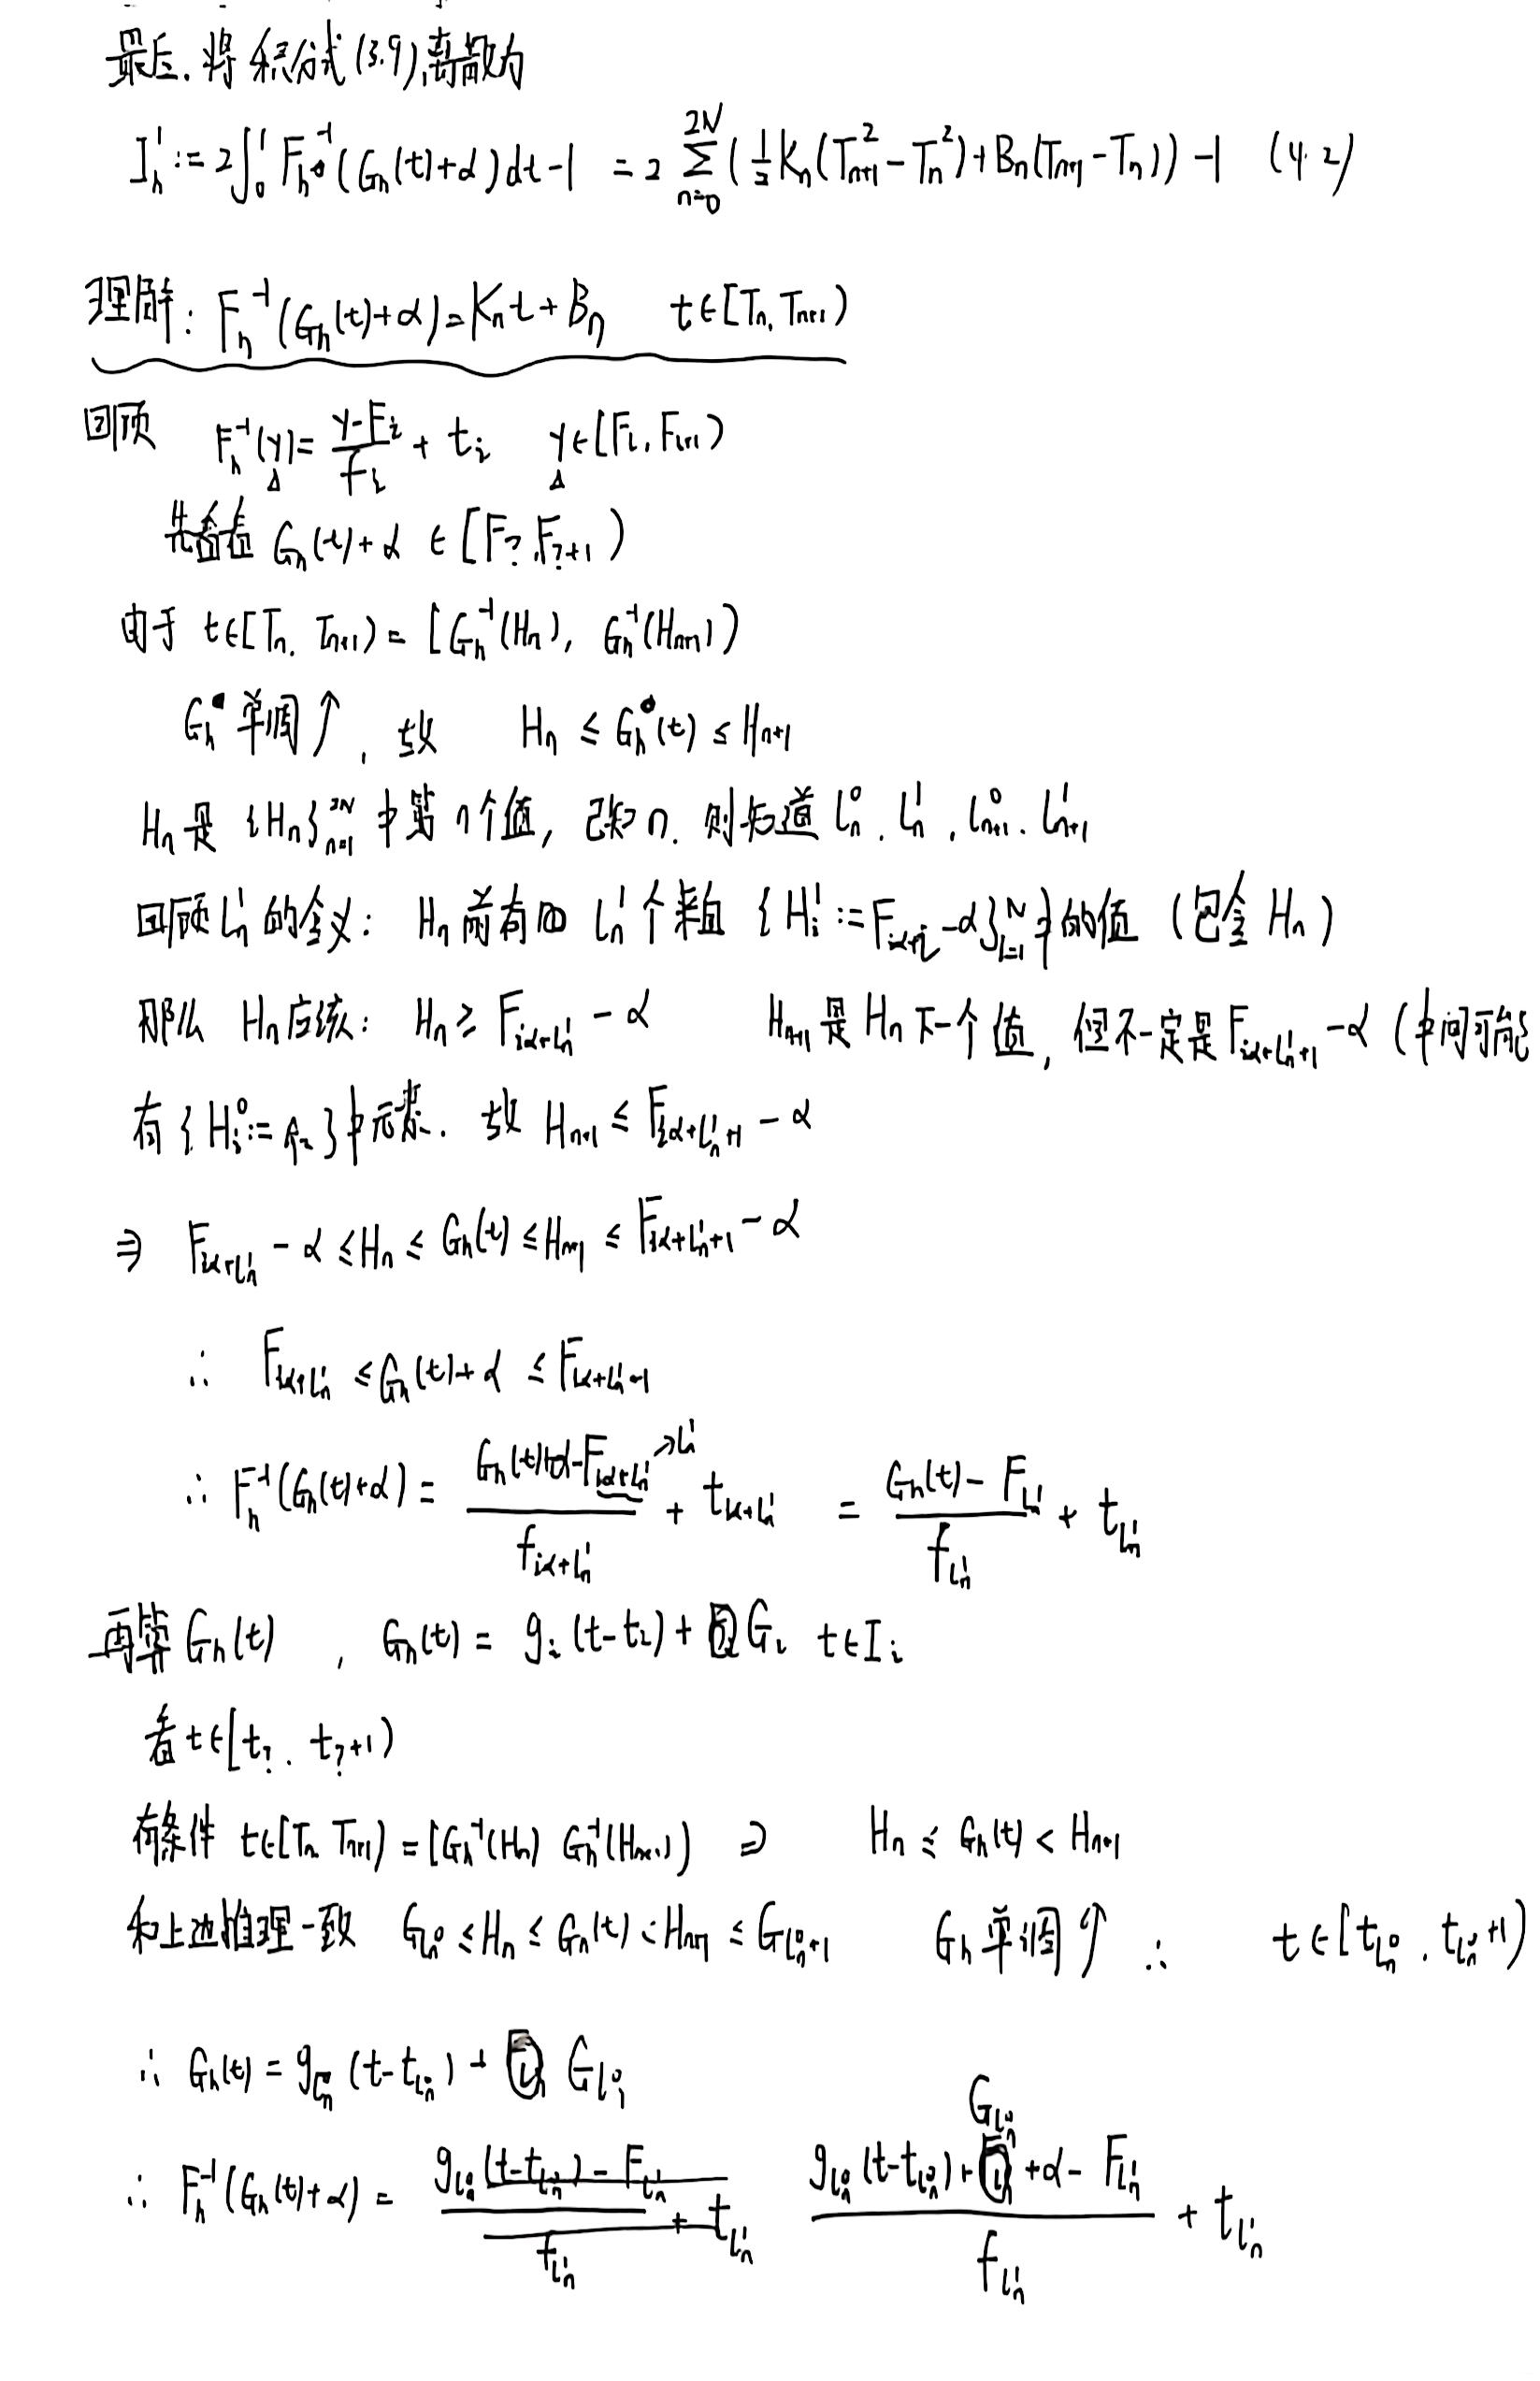 最后. 将积分式(3.9)离散为
I_h^1 := 2∫_0^1 F_h^{-1}(G_h(t)+α)dt-1 = 2 Σ_{n=0}^{2N} (½K_n(T_{n+1}^2 - T_n^2)+B_n(T_{n+1}-T_n)) -1 (4.2)
理解: F_h^{-1}(G_h(t)+α)=K_n t+B_n t∈[T_n, T_{n+1})
回顾 F_h^{-1}(y)= \frac{y-F_i}{f_i} + t_i y∈[F_i, F_{i+1})
先看看 G_h(t)+α ∈ [F_?, F_{?+1})
由于 t∈[T_n, T_{n+1}) = [G_h^{-1}(H_n), G_h^{-1}(H_{n+1}))
G_h 单调↑, 故 H_n ≤ G_h(t) ≤ H_{n+1}
H_n 是 {H_n}_{n=1}^{2N} 中第n个值, 已知n. 则知道 l_n^0, l_n^1, l_{n+1}^0, l_{n+1}^1
回顾 l_n^1 的含义: H_n 前有 l_n^1 个来自 {H_i^1 := F_{iα+i} -α}_{i=1}^N 中的值 (包含 H_n)
那么 H_n 应该: H_n ≥ F_{iα+l_n^1} - α H_{n+1} 是 H_n 下一个值, 但不一定是 F_{iα+l_n^1+1} -α (中间可能
有 {H_i^0 := G_i} 中元素. 故 H_{n+1} ≤ F_{iα+l_n^1+1} - α
⇒ F_{iα+l_n^1} - α ≤ H_n ≤ G_h(t) ≤ H_{n+1} ≤ F_{iα+l_n^1+1} - α
∴ F_{iα+l_n^1} ≤ G_h(t)+α ≤ F_{iα+l_n^1+1}
∴ F_h^{-1}(G_h(t)+α) = \frac{G_h(t)+α-F_{iα+l_n^1}}{f_{iα+l_n^1}} → l_n^1 + t_{iα+l_n^1} = \frac{G_h(t) - F_{l_n^1}}{f_{l_n^1}} + t_{l_n^1}
再算 G_h(t), G_h(t) = g_i (t-t_i) + G_i t∈I_i
看 t∈[t_?, t_{?+1})
有条件 t∈[T_n, T_{n+1}) = [G_h^{-1}(H_n) G_h^{-1}(H_{n+1})) ⇒ H_n ≤ G_h(t) < H_{n+1}
和上边推理一致 G_{l_n^0} ≤ H_n ≤ G_h(t) ≤ H_{n+1} ≤ G_{l_n^0+1} G_h 单调↑ ∴ t∈[t_{l_n^0}, t_{l_n^0+1})
∴ G_h(t) = g_{l_n^0} (t-t_{l_n^0}) + G_{l_n^0}
∴ F_h^{-1}(G_h(t)+α) = \frac{g_{l_n^0}(t-t_{l_n^0}) - F_{l_n^1}}{f_{l_n^1}} + t_{l_n^1} \frac{g_{l_n^0}(t-t_{l_n^0})+G_{l_n^0}+α-F_{l_n^1}}{f_{l_n^1}} + t_{l_n^1}